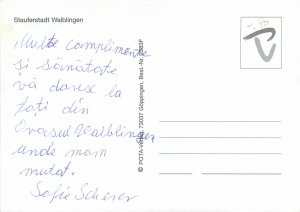 Stauferstadt Waiblingen
Multe complimente
și sănătate
vă doresc la
toți din
Orașul Waiblingen
unde mam
mutat.
Sofie Scherer
© POTA-Verlag 73037 Göppingen; Best.-Nr.